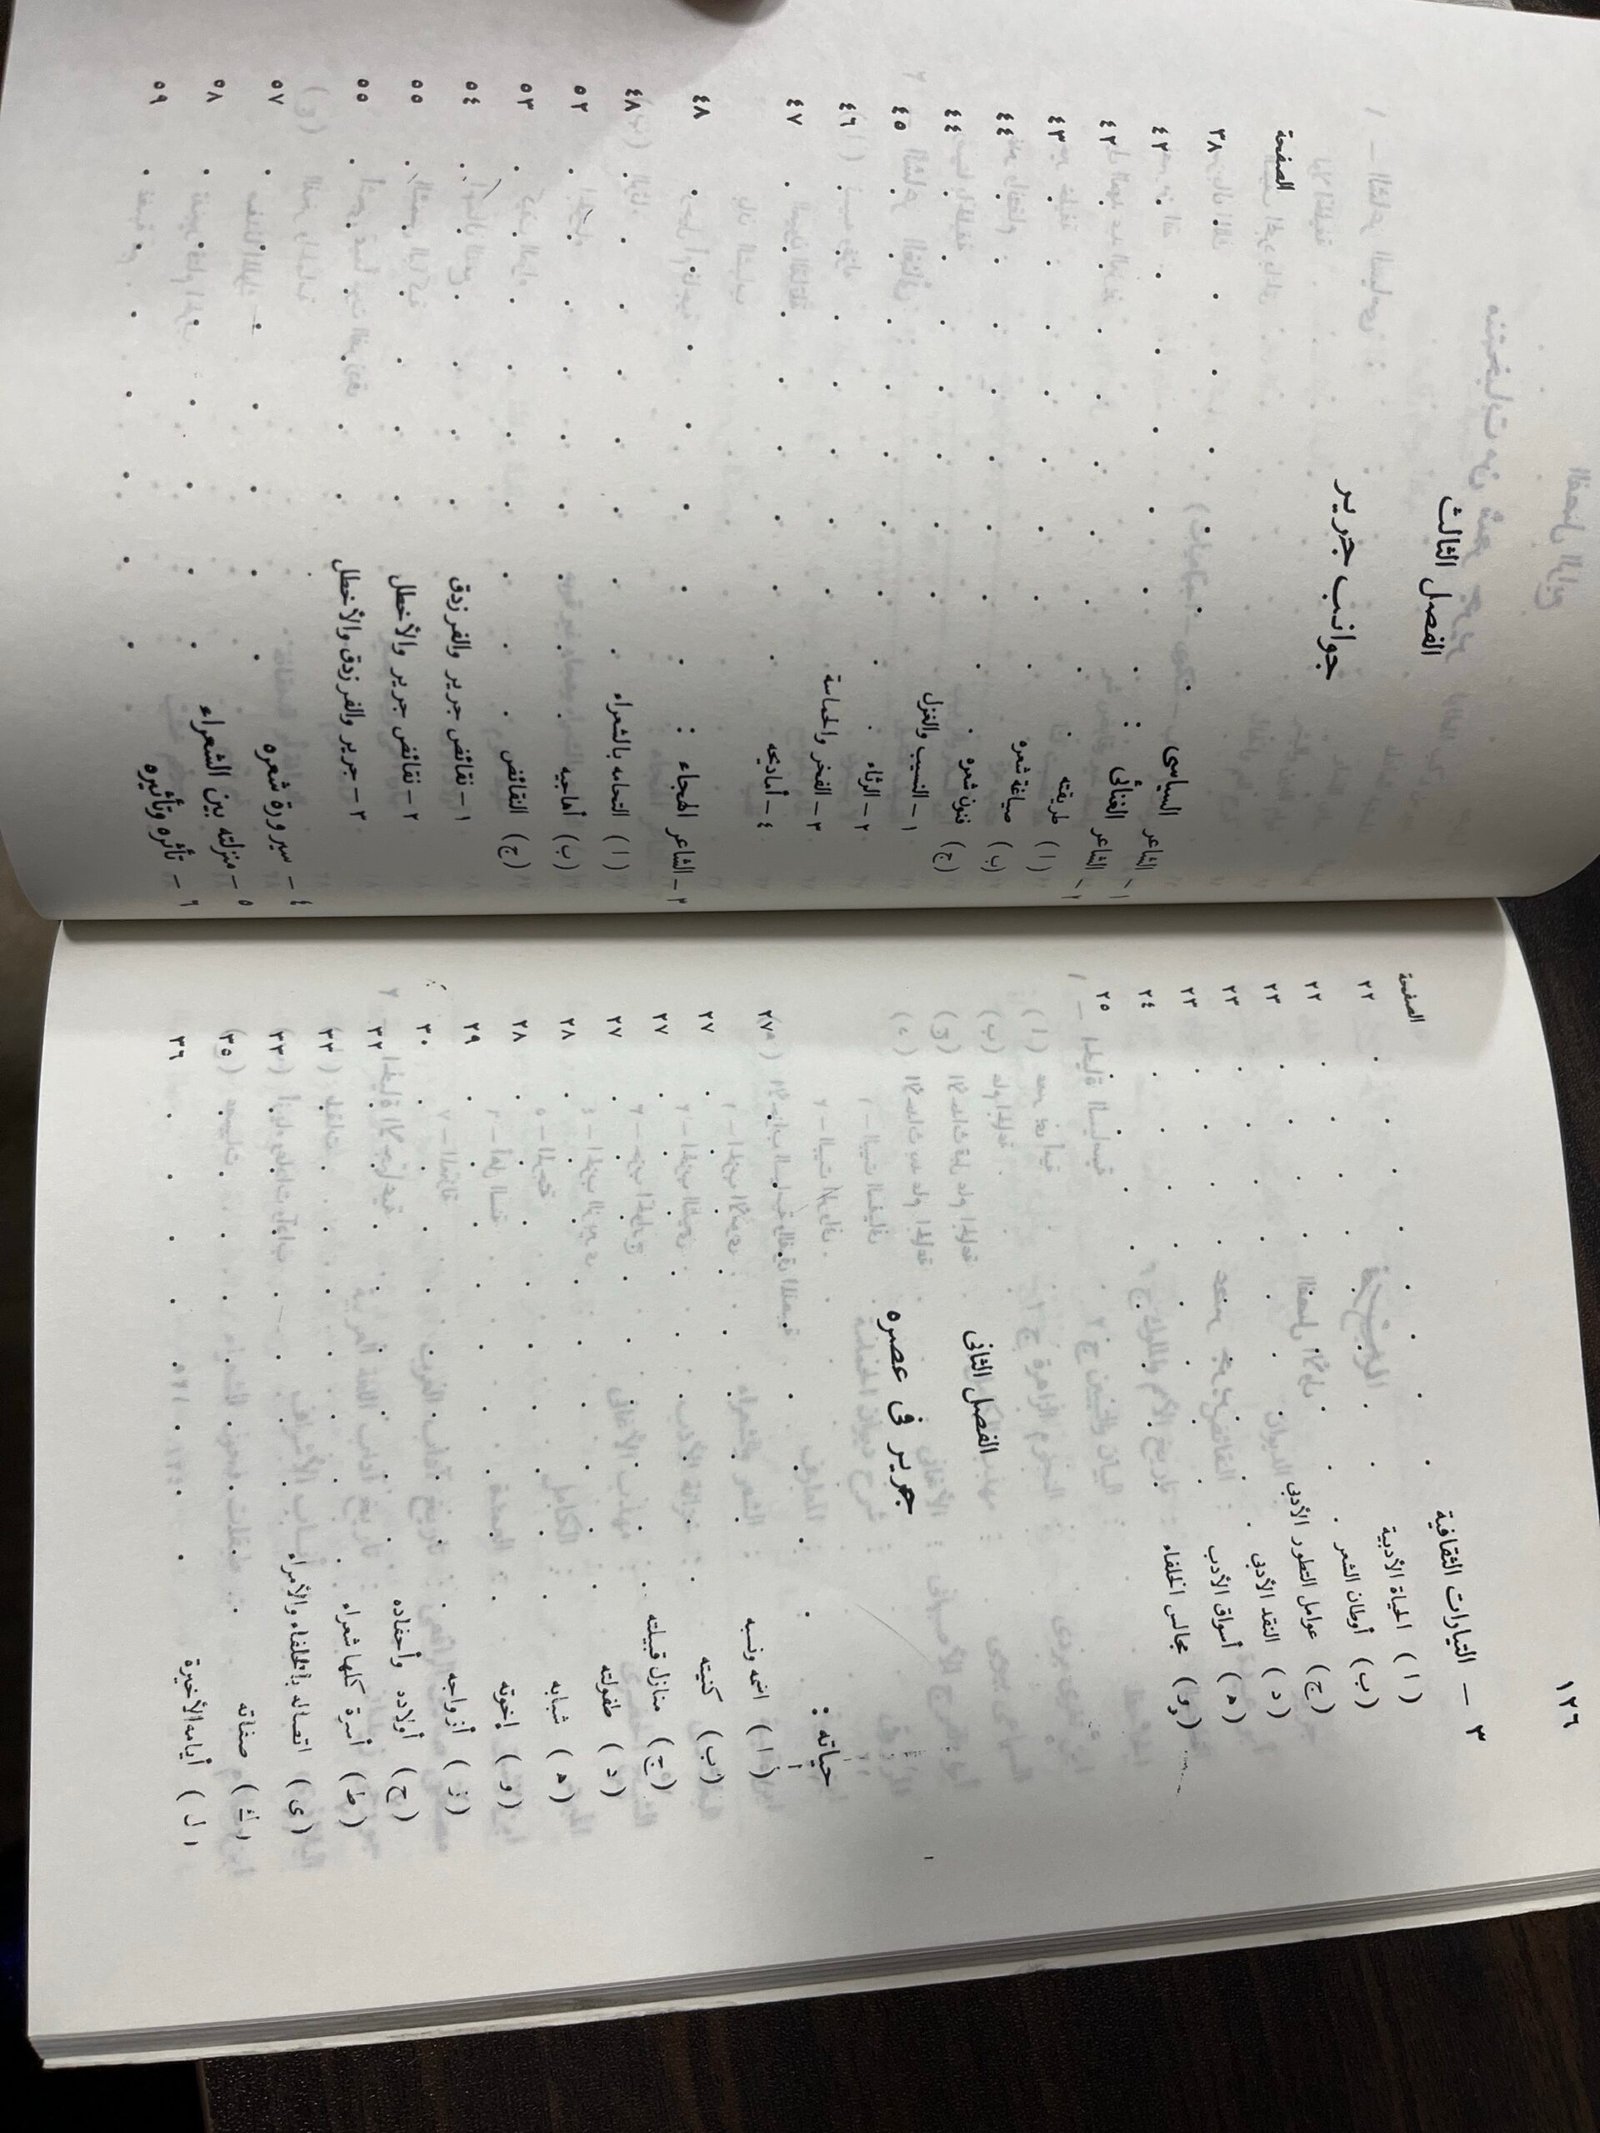 ١٢٦
الصفحة
٣ — التيارات الثقافية . . . . . . . ٢٢
(ا) الحياة الأدبية . . . . . . . ٢٢
(ب) أوطان الشعر . . . . . . . ٢٣
(ج) عوامل التطور الأدبى . . . . . . . ٢٣
(د) النقد الأدبى . . . . . . . ٢٣
(ه) أسواق الأدب . . . . . . . ٢٤
(و) مجالس الخلفاء . . . . . . . ٢٥
الفصل الثانى
جرير فى عصره
حياته : . . . . . . . ٢٧
(ا) اسمه ونسبه . . . . . . . ٢٧
(ب) كنيته . . . . . . . ٢٧
(ج) منازل قبيلته . . . . . . . ٢٧
(د) طفولته . . . . . . . ٢٨
(ه) شبابه . . . . . . . ٢٨
(و) إخوته . . . . . . . ٢٩
(ز) أزواجه . . . . . . . ٣٠
(ح) أولاده وأحفاده . . . . . . . ٣٢
(ط) أسرة كلها شعراء . . . . . . . ٣٣
(ى) اتصاله بالخلفاء والأمراء . . . . . . . ٣٣
(ك) صفاته . . . . . . . ٣٥
(ل) أيامه الأخيرة . . . . . . . ٣٦
الفصل الثالث
جوانب جرير
الصفحة
١ – الشاعر السياسى . . . . . . . ٣٨
٢ – الشاعر الغنائى : . . . . . . . ٤٢
(ا) طريقته . . . . . . . ٤٢
(ب) صياغة شعره . . . . . . . ٤٣
(ج) فنون شعره . . . . . . . ٤٤
١ – النسيب والغزل . . . . . . . ٤٤
٢ – الرثاء . . . . . . . ٤٥
٣ – الفخر والحماسة . . . . . . . ٤٦
٤ – أماديحه . . . . . . . ٤٧
٣ – الشاعر الهجاء : . . . . . . . ٤٨
(ا) التحامه بالشعراء . . . . . . . ٤٨
(ب) أهاجيه . . . . . . . ٥٢
(ج) النقائض . . . . . . . ٥٣
١ – نقائض جرير والفرزدق . . . . . . ٥٤
٢ – نقائض جرير والأخطل . . . . . . ٥٥
٣ – جرير والفرزدق والأخطل . . . . . . ٥٥
٤ – سيرورة شعره . . . . . . . ٥٧
٥ – منزلته بين الشعراء . . . . . . . ٥٨
٦ – تأثره وتأثيره . . . . . . . ٥٩